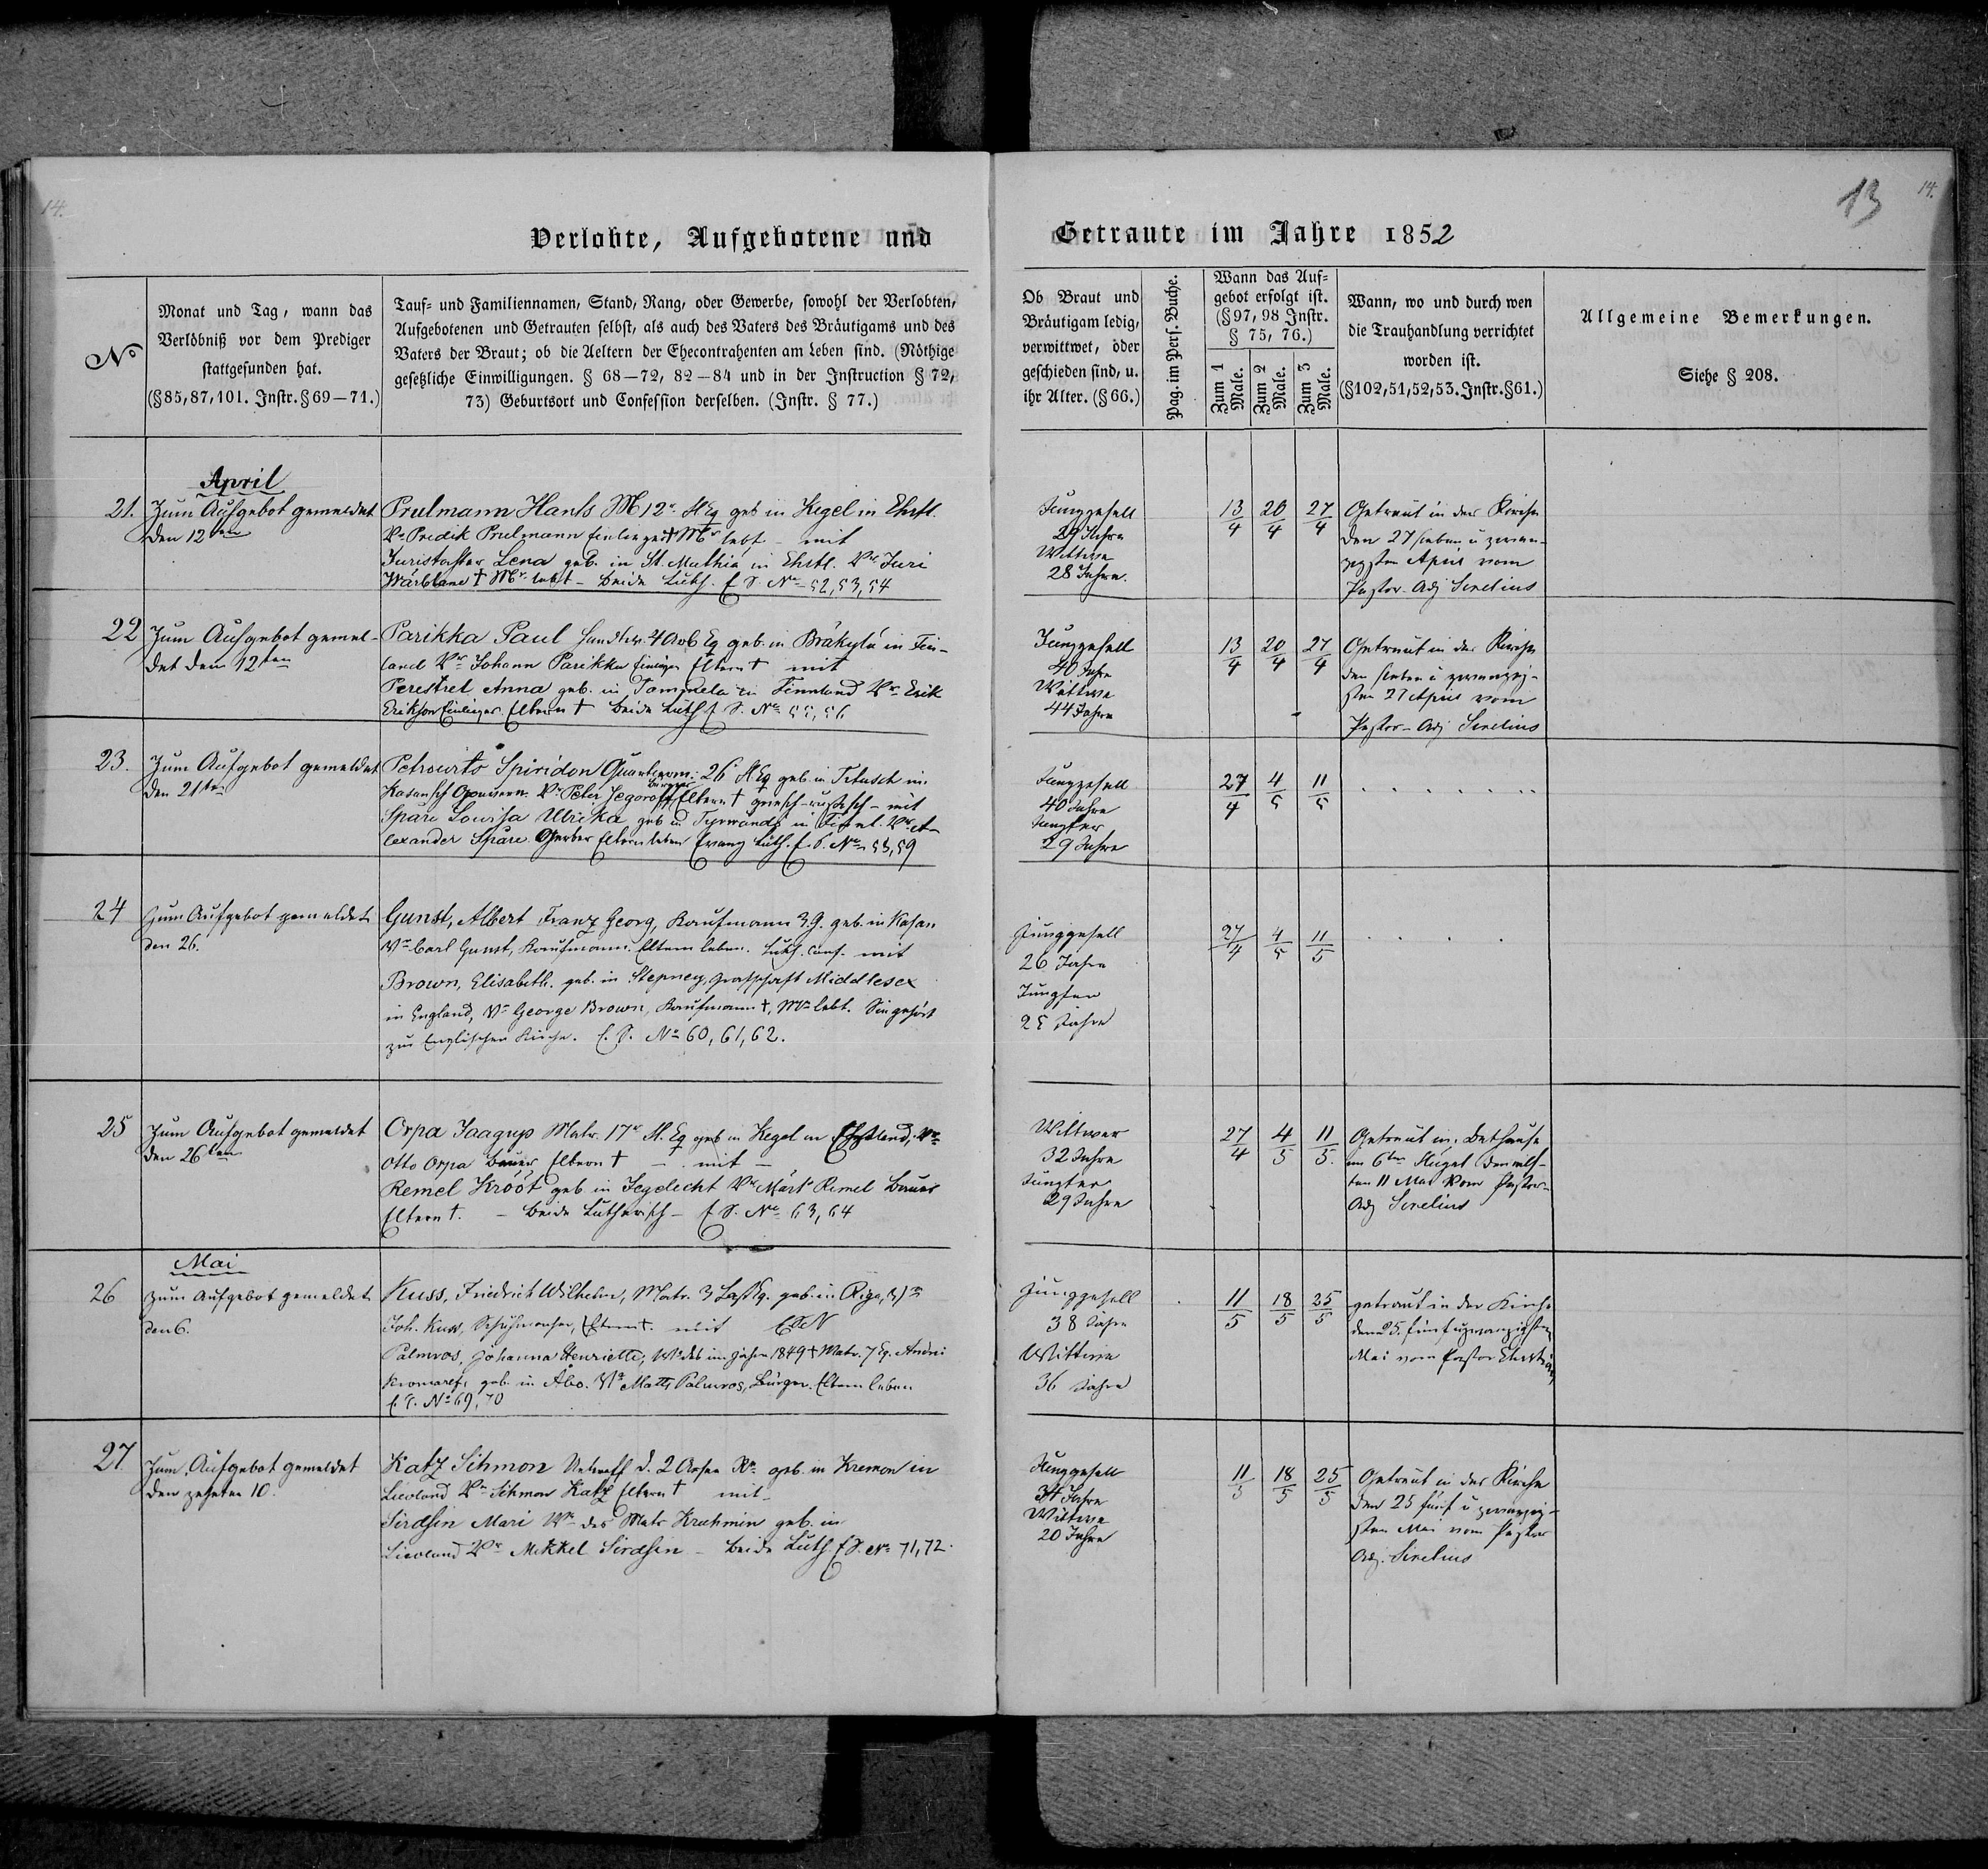 14.
13
14.
Verlobte, Aufgebotene und
Getraute im Jahre 1852
No
Monat und Tag, wann das
Verlöbniß vor dem Prediger
stattgefunden hat.
(§85,87,101. Instr. §69—71.)
Tauf- und Familiennamen, Stand, Rang, oder Gewerbe, sowohl der Verlobten,
Aufgebotenen und Getrauten selbst, als auch des Vaters des Bräutigams und des
Vaters der Braut; ob die Aeltern der Ehecontrahenten am Leben sind. (Nöthige
gesetzliche Einwilligungen. § 68—72, 82—84 und in der Instruction § 72,
73) Geburtsort und Confession derselben. (Instr. § 77.)
Ob Braut und
Bräutigam ledig,
verwittwet, oder
geschieden sind, u.
ihr Alter. (§66.)
Pag. im Pers. Buche.
Wann das Auf-
gebot erfolgt ist.
(§97, 98 Instr.
§ 75, 76.)
Zum 1 Male.
Zum 2 Male.
Zum 3 Male.
Wann, wo und durch wen
die Trauhandlung verrichtet
worden ist.
(§102,51,52,53. Instr. §61.)
Allgemeine Bemerkungen.
Siehe § 208.
April
21. Zum Aufgebot gemeldet
den 12ten
Prulmann Hans M 12r Eq geb in Kegel in Ehstl.
Vr Predik Prulmann † Mr lebt - mit
Lena geb. in St. Mathia in Ehstl. Vr Juri
Wärblane † Mr lebt - beide Luth. E S. No 52, 53, 54
Junggesell
29 Jahre
Wittwe
28 Jahre.
13/4 20/4 27/4
Getraut in der Kirche
den 27 sieben u zwan-
zigsten April vom
Pastor-Adj Sirelius
22 Zum Aufgebot gemel-
det den 12ten
Parikka Paul geb. in Bräkylä in Fin-
land Vr Johann Parikka Eltern † mit
Perestrel Anna geb. in in Finnland Vr Erik
Erikson Eltern † beide Luth E S. No 55, 56
Junggesell
40 Jahre
Wittwe
44 Jahre
13/4 20/4 27/4
Getraut in der Kirche
den sieben u zwanzig-
sten 27 April vom
Pastor-Adj Sirelius
23. Zum Aufgebot gemeldet
den 21ten
Petrowits Spiridon 26 Eq geb. in Tetusch im
Kasansch Gouvern. Vr Peter Jegoroff Bürger Eltern † griech-russisch - mit
Späre Lowisa Ulrika geb in in Finl. Vr A-
lexander Späre Gerber Eltern leben Evang Luth. E. S. No 58, 59
Junggesell
40 Jahre
Jungfer
29 Jahre
27/4 4/5 11/5
24 Zum Aufgebot gemeldet
den 26.
Gunst, Albert Franz Georg, Kaufmann 3. G. geb. in Kasan
Vr Carl Gunst, Kaufmann. Eltern leben. Luth. Conf. mit
Brown, Elisabeth. geb. in Stepney, Grafschaft Middlesex
in England, Vr George Brown, Kaufmann †, Mr lebt. Sie gehört
zur Englischen Kirche. E. S. No 60, 61, 62.
Junggesell
26 Jahre
Jungfer
25 Jahre
27/4 4/5 11/5
25 Zum Aufgebot gemeldet
den 26ten
Orpa Jaagup Matr. 17r Eq geb in Kegel in Ehstland, Vr
Otto Orpa Bauer Eltern † - mit -
Remel Kröõt geb in Jegelecht Vr Märt Remel Bauer
Eltern †. - beide Lutherisch - E S. No 63, 64
Wittwer
32 Jahre
Jungfer
29 Jahre
27/4 4/5 11/5
Getraut in Bethause
im 6ten den elf-
ten 11 Mai vom Pastor-
Adj Sirelius
Mai
26 zum Aufgebot gemeldet
den 6.
Kuss, Friedrich Wilhelm, Matr. 3 geb. in Riga, Vr
Joh. Kuss, Eltern †. mit
Palmros, Johanna Henriette, W. des im Jahre 1849 † Matr. 7 Eq. Andrei
geb. in Åbo. Vr Matts Palmros, Bürger. Eltern leben
E S. No 69, 70
Junggesell
38 Jahre
Wittwe
36 Jahre
11/5 18/5 25/5
getraut in der Kirche
den 25. fünfuzwanzigsten
Mai vom Pastor
27. Zum Aufgebot gemeldet
den zehnten 10.
Katz Sihmon Unteroff d. 2 geb. in Kremon in
Liewland Vr Sihmon Katz Eltern † mit -
Sirdsin Mari Wwe des Matr Kruhmin geb. in
Liewland Vr Mikkel Sirdsin - beide Luth E S. No 71, 72.
Junggesell
34 Jahre
Wittwe
20 Jahre
11/5 18/5 25/5
Getraut in der Kirche
den 25 fünf u zwanzig-
sten Mai vom Pastor
Adj. Sirelius